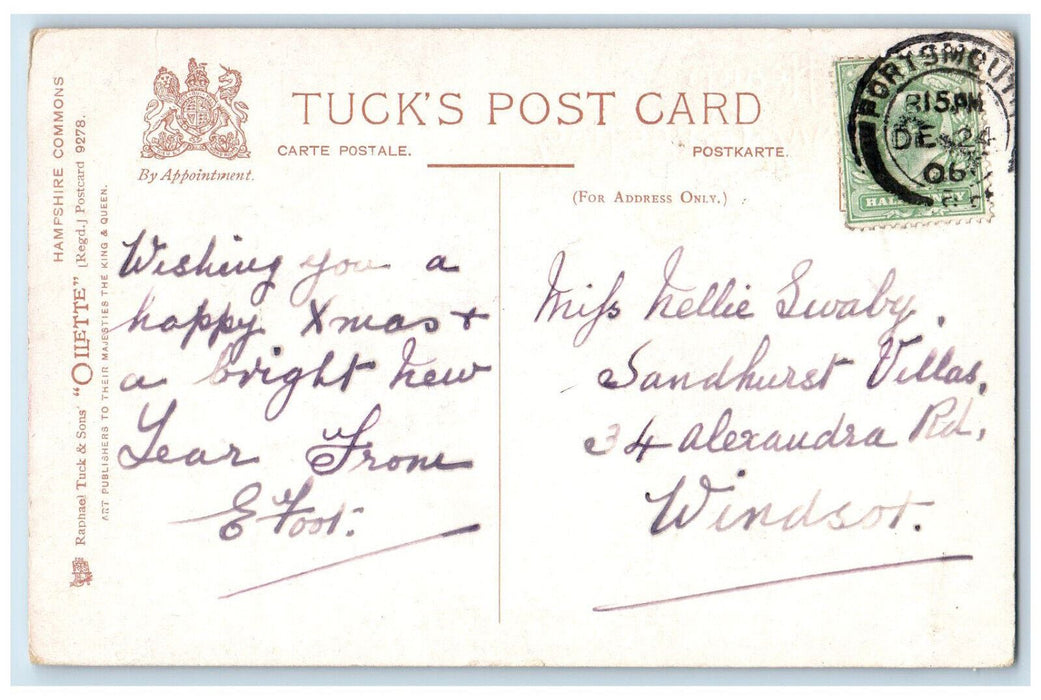 TUCK'S POST CARD
CARTE POSTALE.
POSTKARTE.
By Appointment.
(FOR ADDRESS ONLY.)
HAMPSHIRE COMMONS
Raphael Tuck & Sons' "OILETTE" [Regd.] Postcard 9278.
ART PUBLISHERS TO THEIR MAJESTIES THE KING & QUEEN.
PORTSMOUTH
15 PM
DE 24
06
HALFPENNY
Wishing you a
happy Xmas +
a bright New
Year From
E Foot.
Miss Nellie Swaby,
Sandhurst Villas,
34 Alexandra Rd,
Windsor.